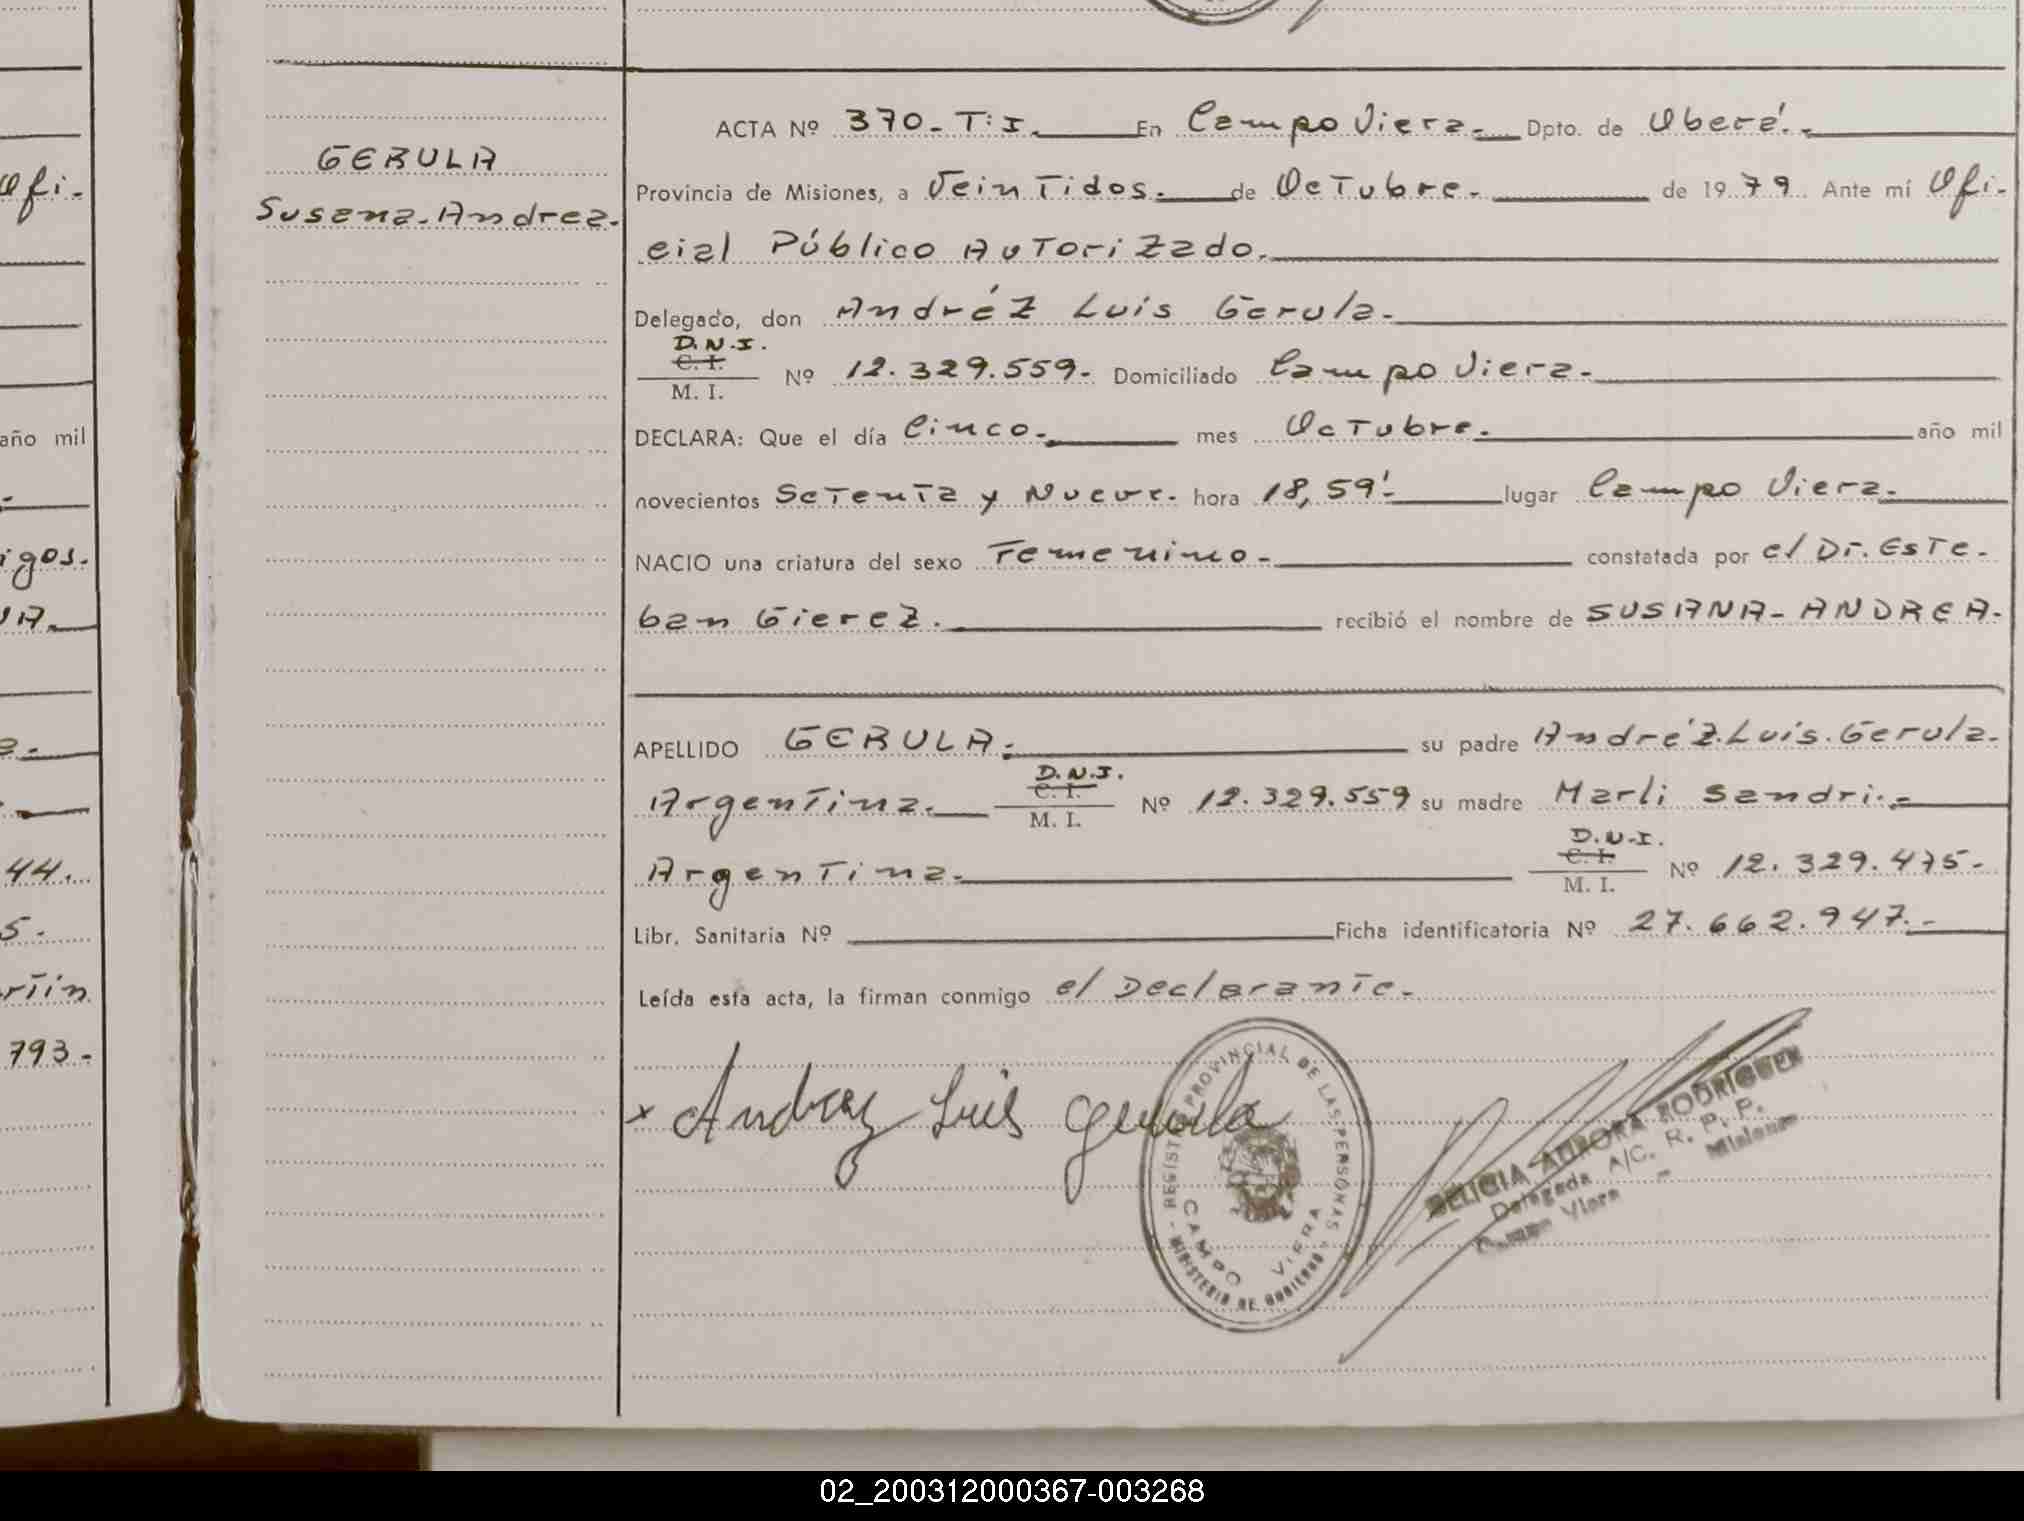 GERULA
Susana-Andrea-
ACTA Nº 370-T:I. En Campo Viera- Dpto. de Oberá.-
Provincia de Misiones, a Veintidos. de Octubre. de 1979 Ante mí Ofi-
cial Público Autorizado.
Delegado, don Andréz Luis Gerula.
D.N.I.
C. I.
M. I. Nº 12.329.559- Domiciliado Campo Viera-
DECLARA: Que el día Cinco- mes Octubre. año mil
novecientos Setenta y Nueve. hora 18,59'- lugar Campo Viera-
NACIO una criatura del sexo Femenino- constatada por el Dr. Este-
ban Gierez. recibió el nombre de SUSANA-ANDREA-
APELLIDO GERULA. su padre Andréz.Luis.Gerula-
D.N.I.
Argentina. C. I.
M. I. Nº 12.329.559 su madre Marli Sandri.-
D.N.I.
Argentina. C. I.
M. I. Nº 12.329.475-
Libr. Sanitaria Nº Ficha identificatoria Nº 27.662.947.-
Leída esta acta, la firman conmigo el Declarante.
x Andrez Luis Gerula
REGISTRO PROVINCIAL DE LAS PERSONAS
CAMPO VIERA
MINISTERIO DE GOBIERNO
DELICIA AURORA RODRIGUEZ
Delegada A/C. R. P. P.
Campo Viera - Misiones
Ofi-
año mil
igos.
44.
5.
rtin
793-
02_200312000367-003268